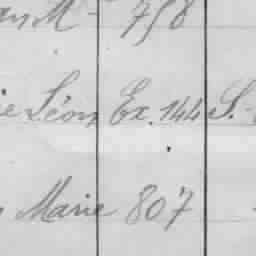 M 758
ie Léon Ex. 144 S.
Marie 807